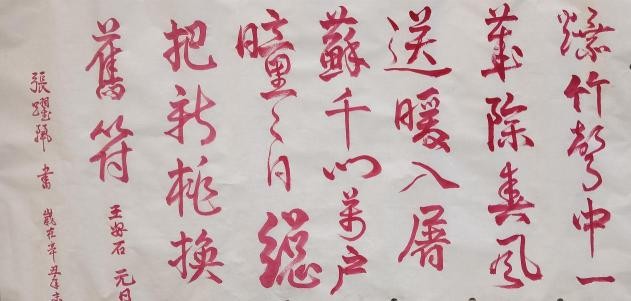 爆竹聲中一
歲除春風
送暖入屠
蘇千門萬户
曈々日總
把新桃換
舊符
王安石 元日
張躍 書
歲在辛丑年